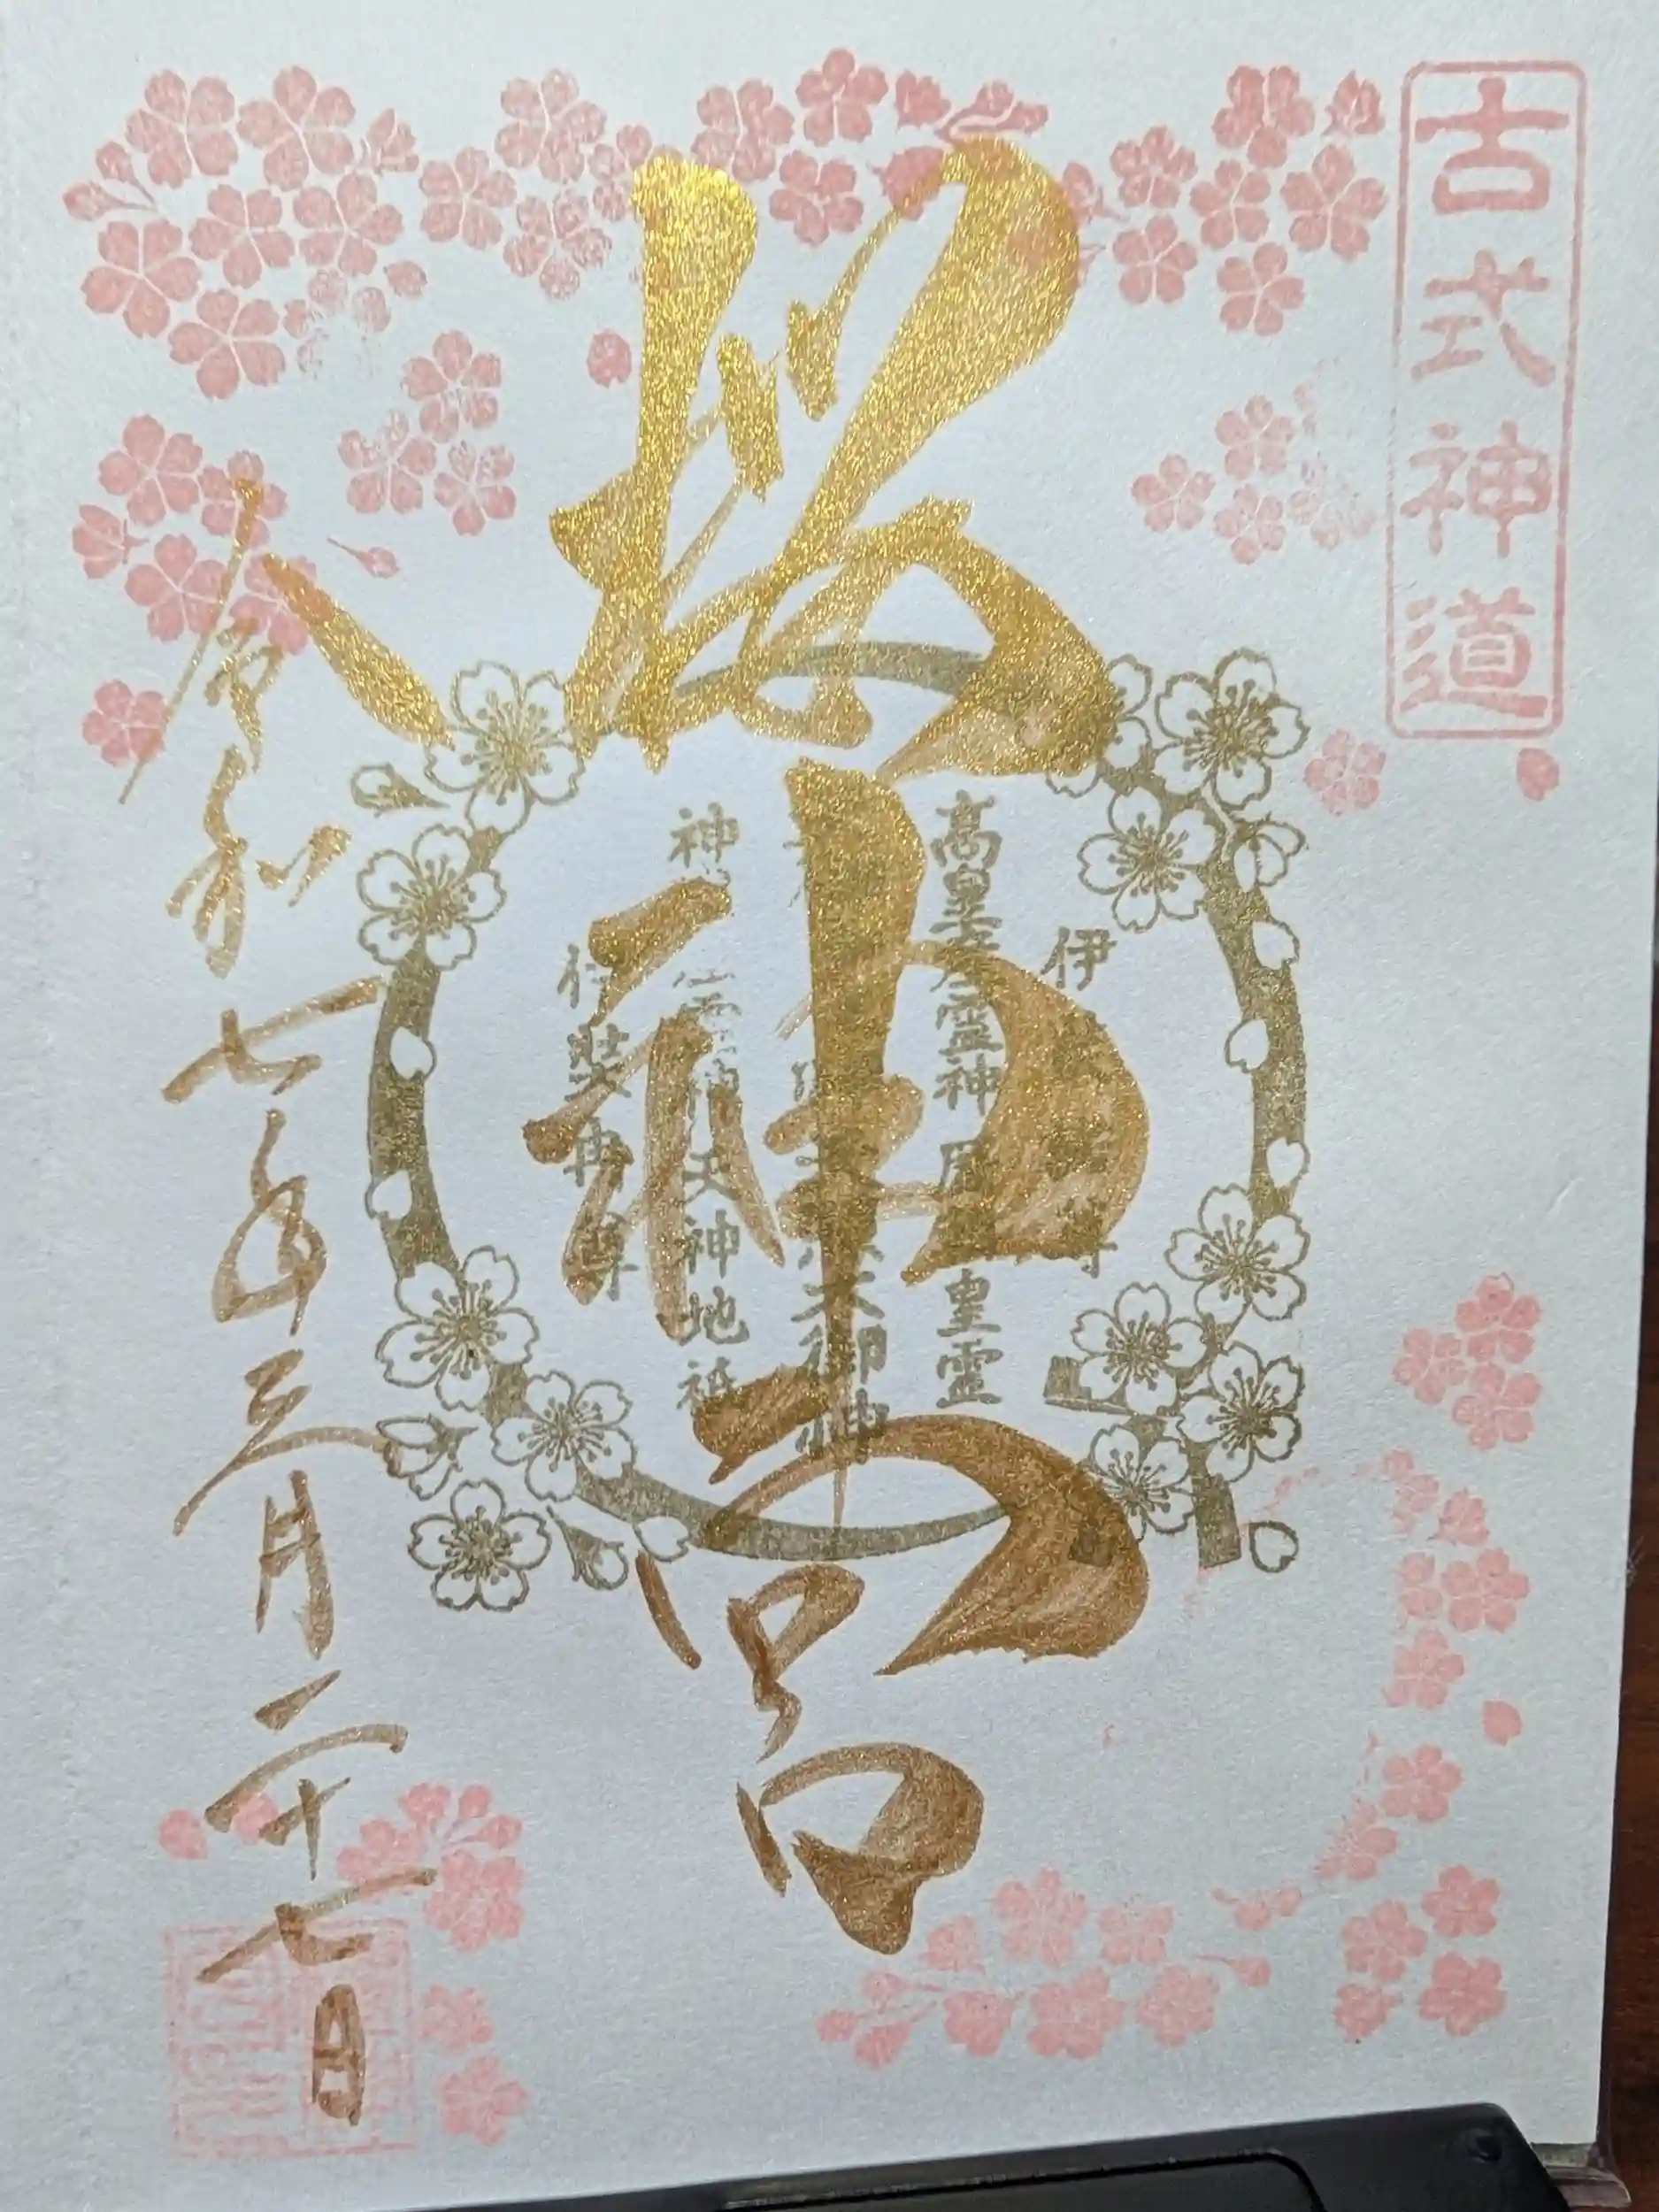 古式神道
櫻神宮
伊
高皇産霊神 皇霊
大御神
神 神天神地祇
伊弉冉尊
令和七年三月二十七日